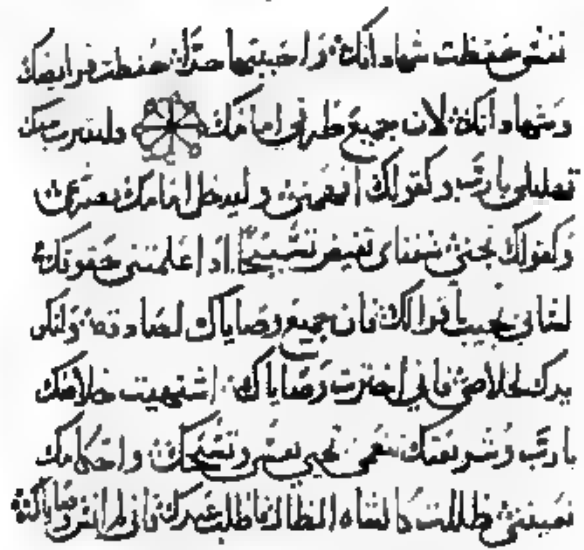 نفسي حفظت شهاداتك واحبيتها جدًا حفظت فرايضك
وشهاداتك لان جميع طرقي امامك وليقترب صوتي
تضرعي يا رب وكقولك افهمني وليدخل امامك تضرعي
وكقولك نجني شفتاي تفيض تسبيحًا اذا علمتني حقوقك
لساني يجيب باقوالك فان جميع وصاياك لصادقه ولتكن
يدك لخلاصي فاني اخترت وصاياك اشتهيت خلاصك
يا رب وشريعتك تحيي نفسي وتسبحك واحكامك
تعينني ظللت كالشاه الضال فاطلب عبدك فاني لم انس وصاياك